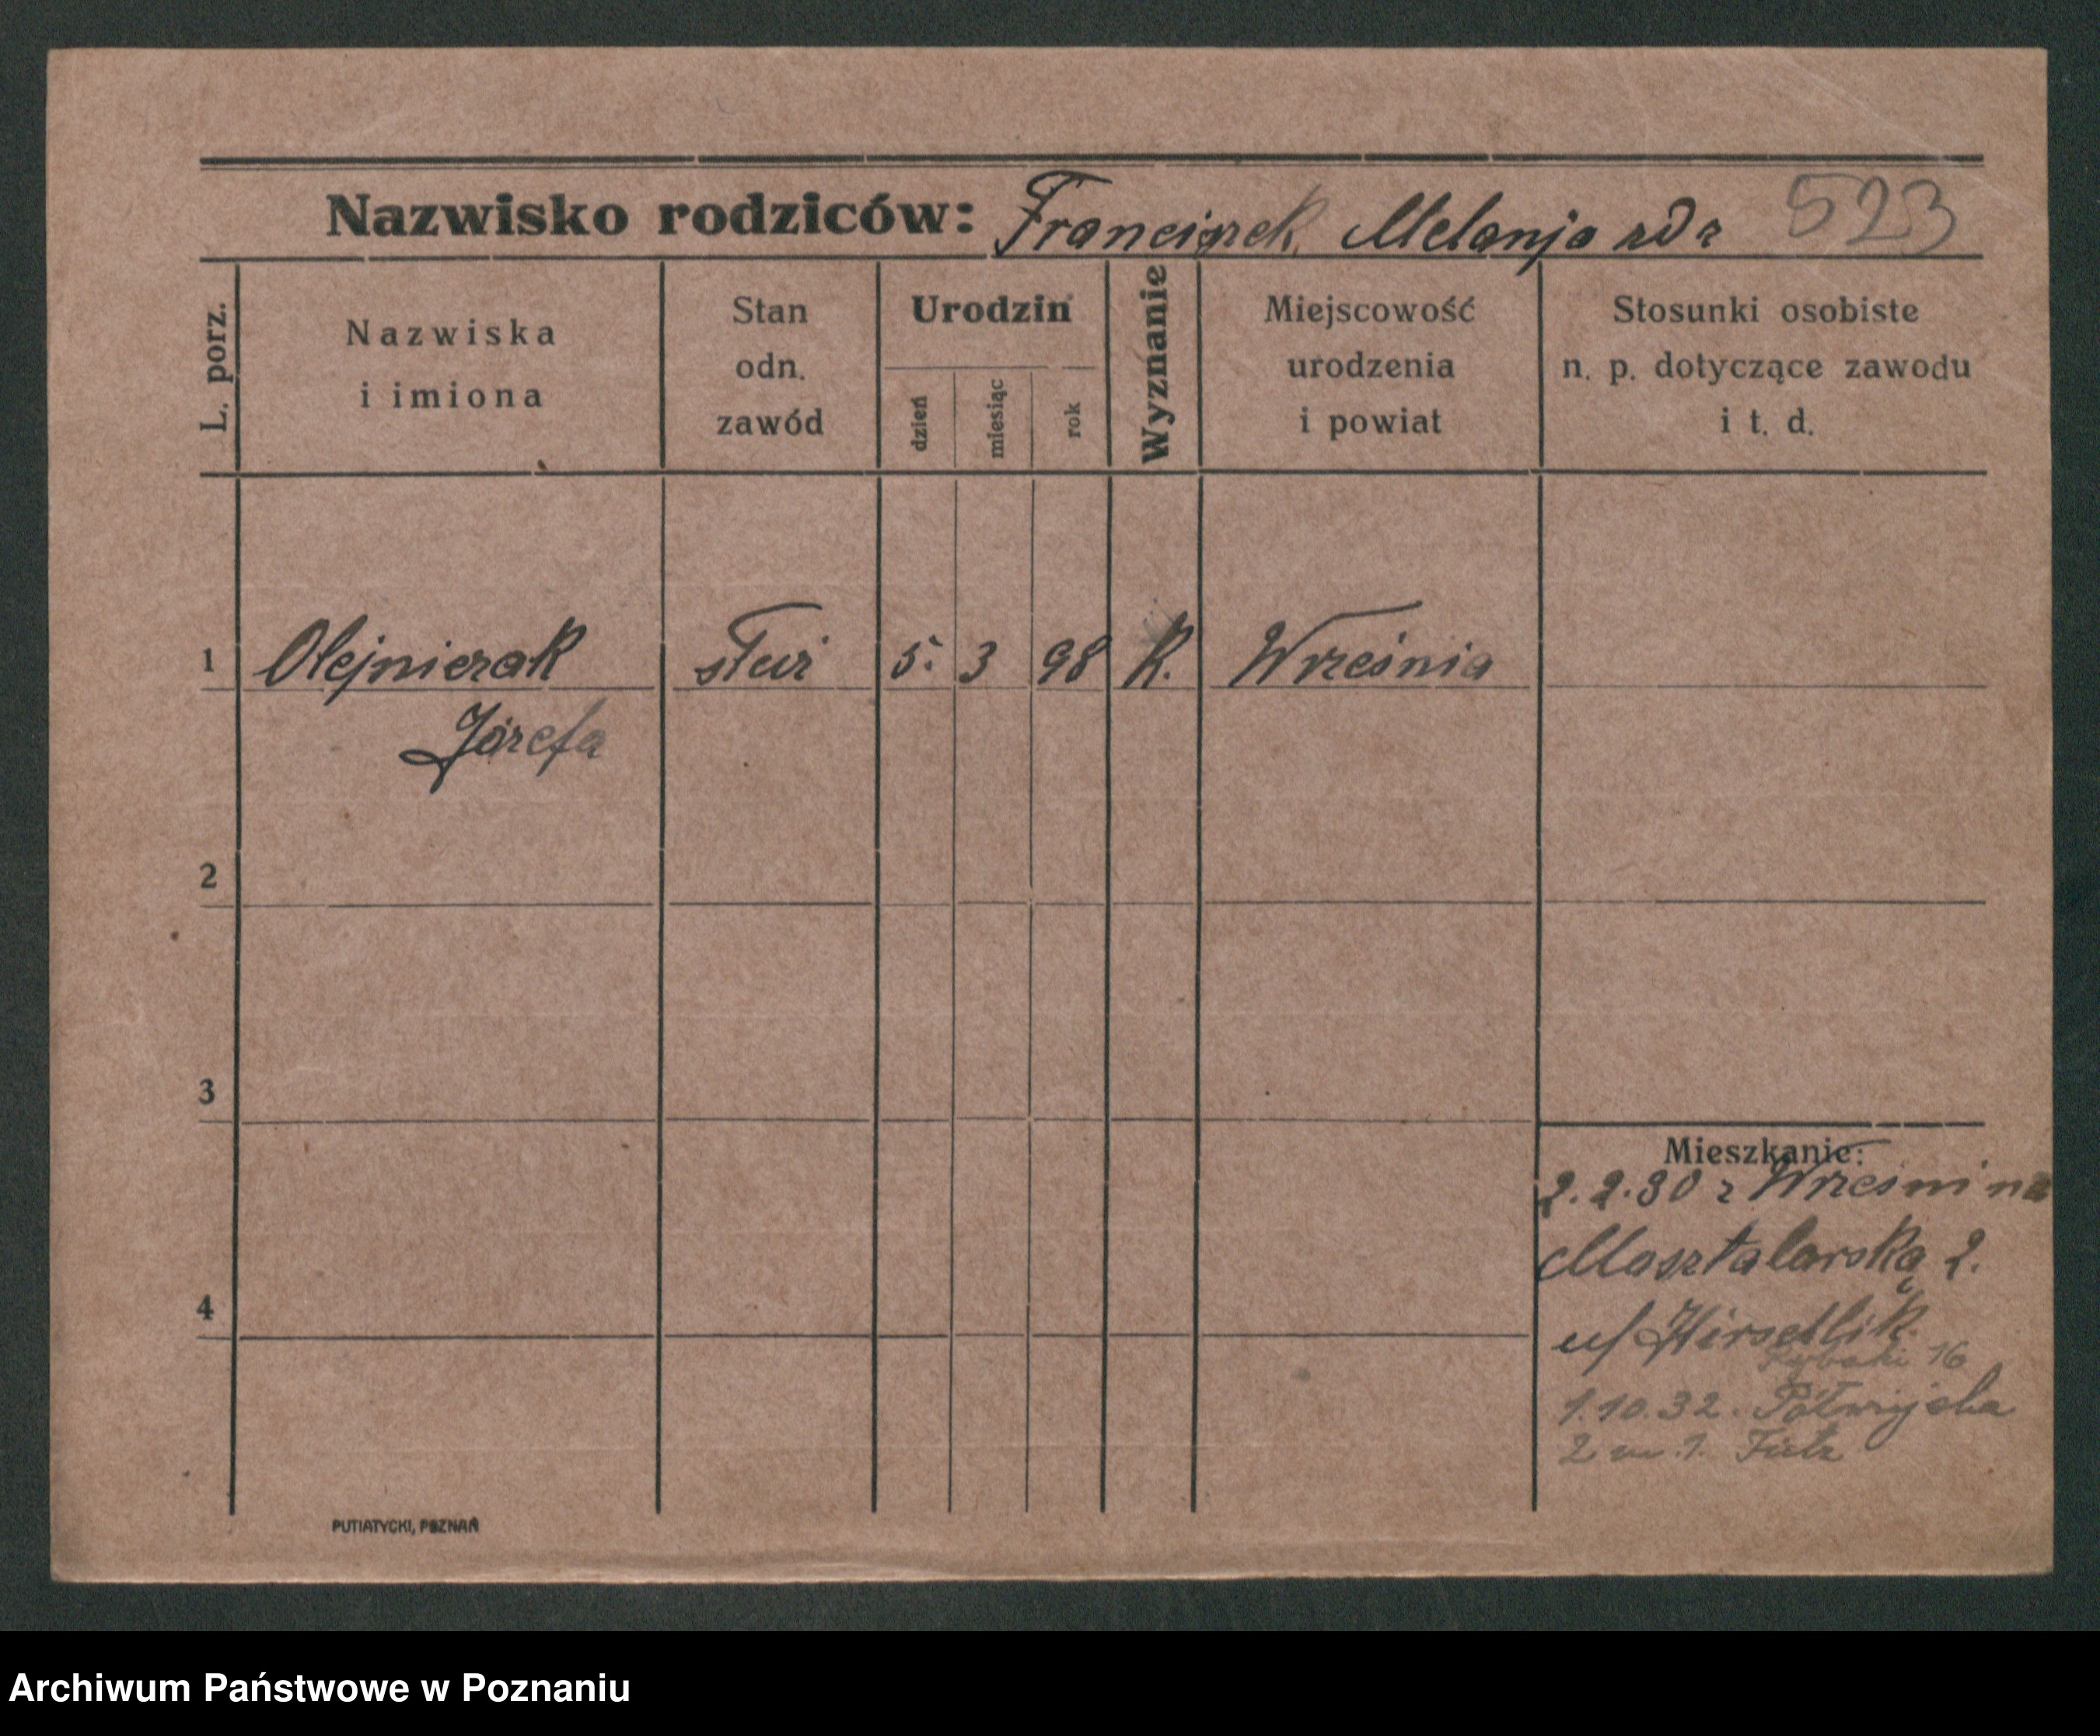 Nazwisko rodziców: Franciszek, Melanja 523
L. porz.
Nazwiska i imiona
Stan odn. zawód
Urodzin
dzień
miesiąc
rok
Wyznanie
Miejscowość urodzenia i powiat
Stosunki osobiste n. p. dotyczące zawodu i t. d.
1 Olejniczak służ 5. 3 98 K. Września
Józefa
2
3
4
Mieszkanie:
2.2.30 z Wrześni na
Masztalarską 2.
u/
Rybaki 16
1.10.32. Półwiejska
2 m. 1.
PUTIATYCKI, POZNAŃ
Archiwum Państwowe w Poznaniu